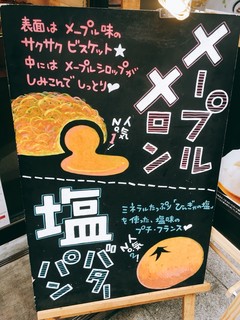 表面は メープル味の
サクサク ビスケット★
中には メープルシロップが
しみこんで しっとり♥
人気
No.2
メープル
メロン
塩
バター
パン
ミネラルたっぷり
を使った、塩味の
プチ・フランス♥
人気
No.1